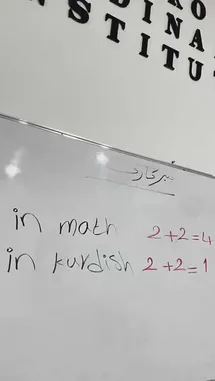 KO
DINA
NSTITU
بیرکاری
in math 2+2=4
in kurdish 2+2=1